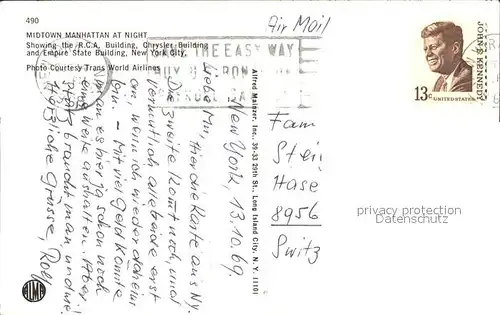 490
MIDTOWN MANHATTAN AT NIGHT
Showing the R.C.A. Building, Chrysler Building
and Empire State Building, New York City.
Photo Courtesy Trans World Airlines
Air Mail
THE EASY WAY
BUY
JOHN F. KENNEDY
13c
UNITED STATES
New York, 13.10.69.
Liebe Mu, Hier die Karte aus Ny.
Die zweite kommt noch, und
vermutlich alle beide erst
an, wenn ich wieder daheim
bin. – Mit viel Geld könnte
man es hier ja schon noch
eine Weile aushalten. Aber
Herzliche Grüsse, Rolf
Alfred Mainzer, Inc., 39-33 29th St., Long Island City, N. Y. 11101
Fam
Stei
Hase
8956
Switz
privacy protection
Datenschutz